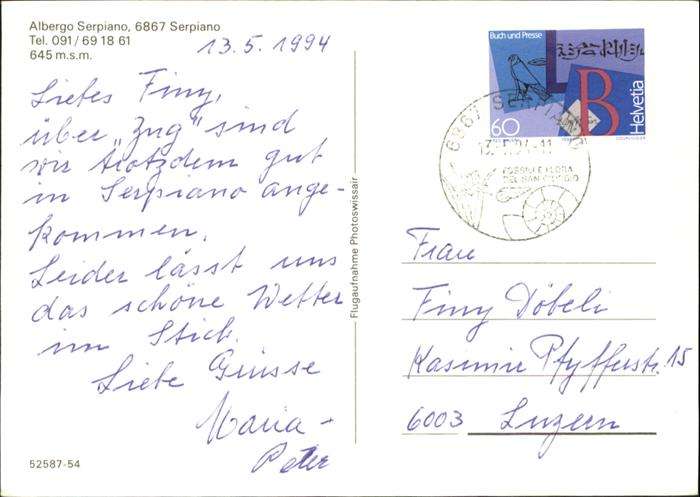 Albergo Serpiano, 6867 Serpiano
Tel. 091/69 18 61
645 m.s.m.
13.5.1994
Liebes Finy,
über „Zug" sind
wir trotzdem gut
in Serpiano ange-
kommen.
Leider lässt uns
das schöne Wetter
im Stich.
Liebe Grüsse
Maria-
Peter
52587-54
Flugaufnahme Photoswissair
Buch und Presse
B
60
Helvetia
6867 SERPIANO
FOSSILI E FLORA
DEL SAN GIORGIO
Frau
Finy Döbeli
Kasimir Pfyfferstr. 15
6003 Luzern